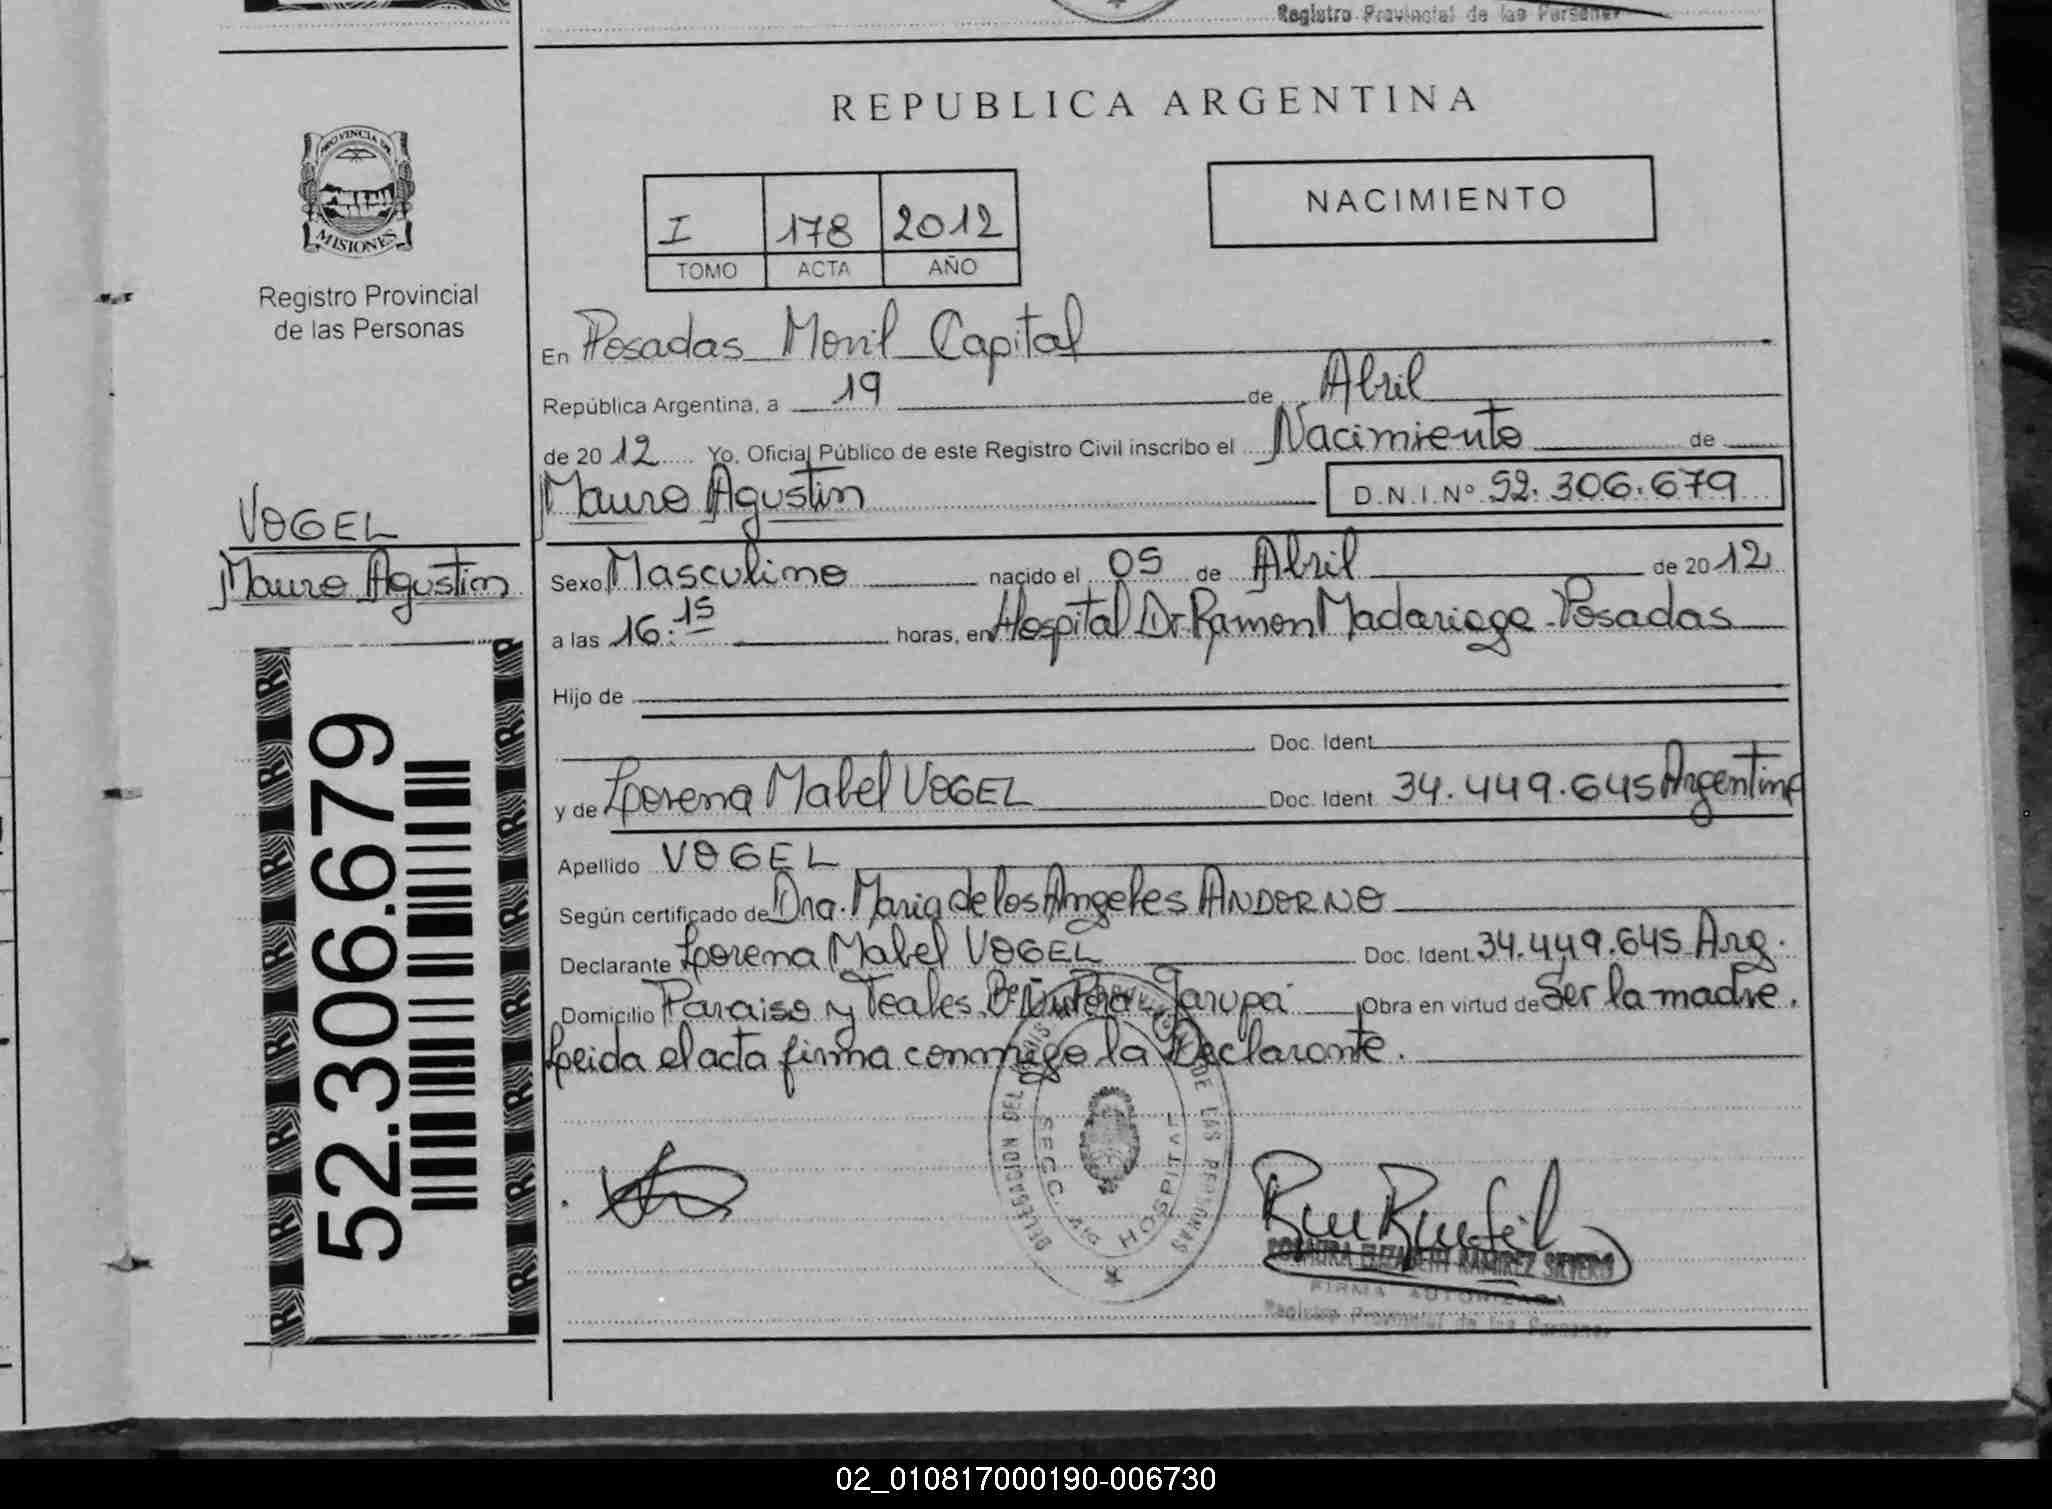 Registro Provincial de las Personas
REPUBLICA ARGENTINA
PROVINCIA DE
MISIONES
Registro Provincial
de las Personas
I 178 2012
TOMO ACTA AÑO
NACIMIENTO
En Posadas Movil Capital
República Argentina, a 19 de Abril
de 2012 Yo, Oficial Público de este Registro Civil inscribo el Nacimiento de
Mauro Agustin D.N.I.Nº 52.306.679
VOGEL
Mauro Agustin
Sexo Masculino nacido el 05 de Abril de 2012
a las 16:15 horas, en Hospital Dr. Ramon Madariaga - Posadas
Hijo de
Doc. Ident.
y de Lorena Mabel VOGEL Doc. Ident. 34.449.645 Argentina
Apellido VOGEL
Según certificado de Dra. Maria de los Angeles ANDORNO
Declarante Lorena Mabel VOGEL Doc. Ident. 34.449.645 Arg.
Domicilio Paraiso y Teales Bº Garupá Obra en virtud de Ser la madre.
Leida el acta firma conmigo la Declarante.
52.306.679
DELEGACION DEL DE LAS PERSONAS
SECC. HOSPITAL
ROSAURA ELIZABETH RAMIREZ SILVERO
FIRMA AUTORIZADA
Registro Provincial de las Personas
02_010817000190-006730